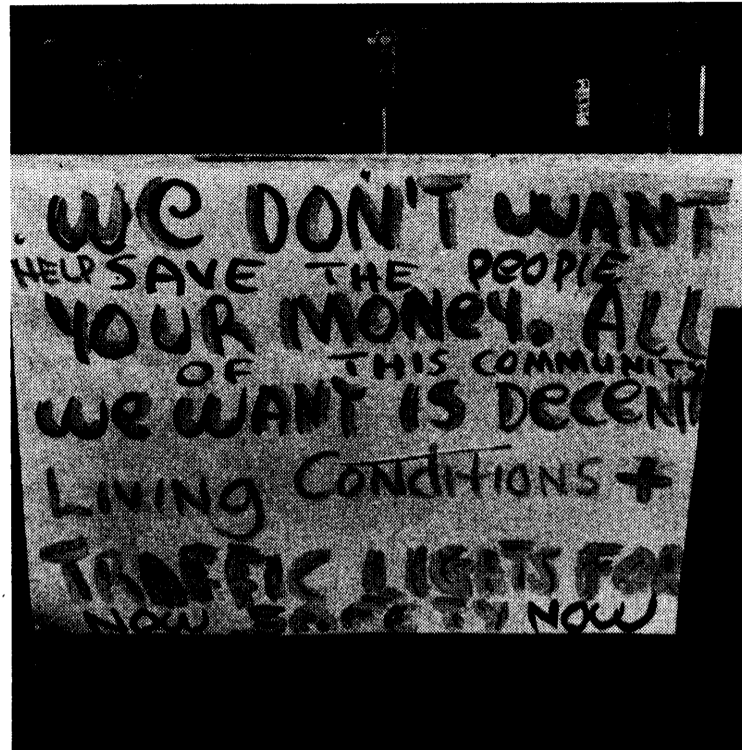 WE DON'T WANT
HELP SAVE THE PEOPLE
YOUR MONEY. ALL
OF THIS COMMUNITY
WE WANT IS DECENT
LIVING CONDITIONS +
TRAFFIC LIGHTS FOR
NOW NOW